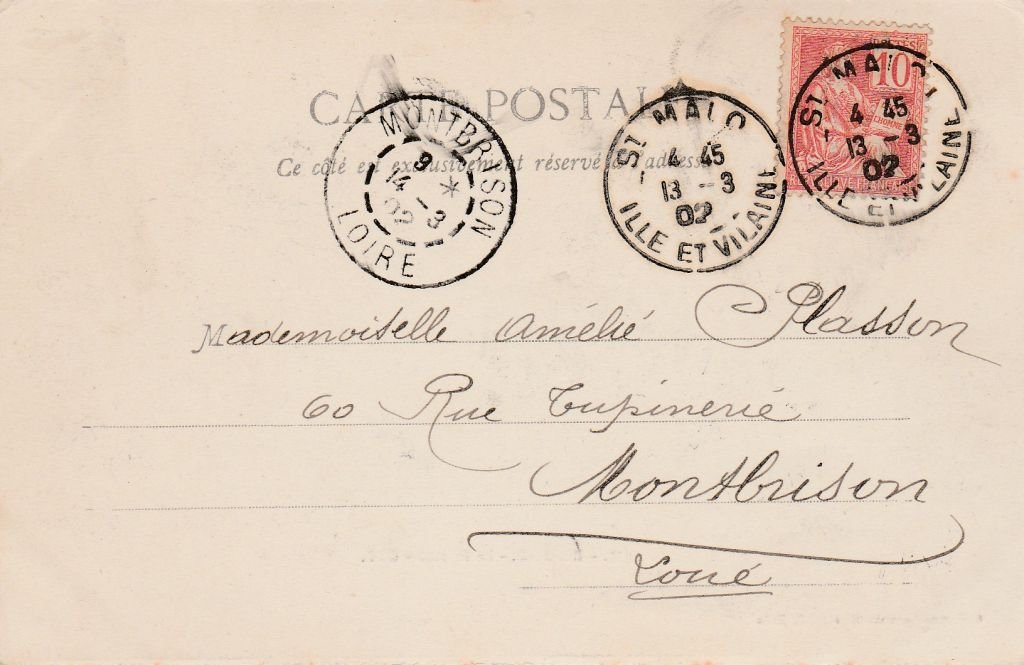 CARTE POSTALE
Ce côté est exclusivement réservé à l'adresse
10
POSTES
MONTBRISON
9 *
14 -3
02
LOIRE
ST MALO
4 45
13 -3
02
ILLE ET VILAINE
ST MALO
4 45
13 -3
02
ILLE ET VILAINE
Mademoiselle Amélie Plasson
60 Rue Tupinerie
Montbrison
Loire